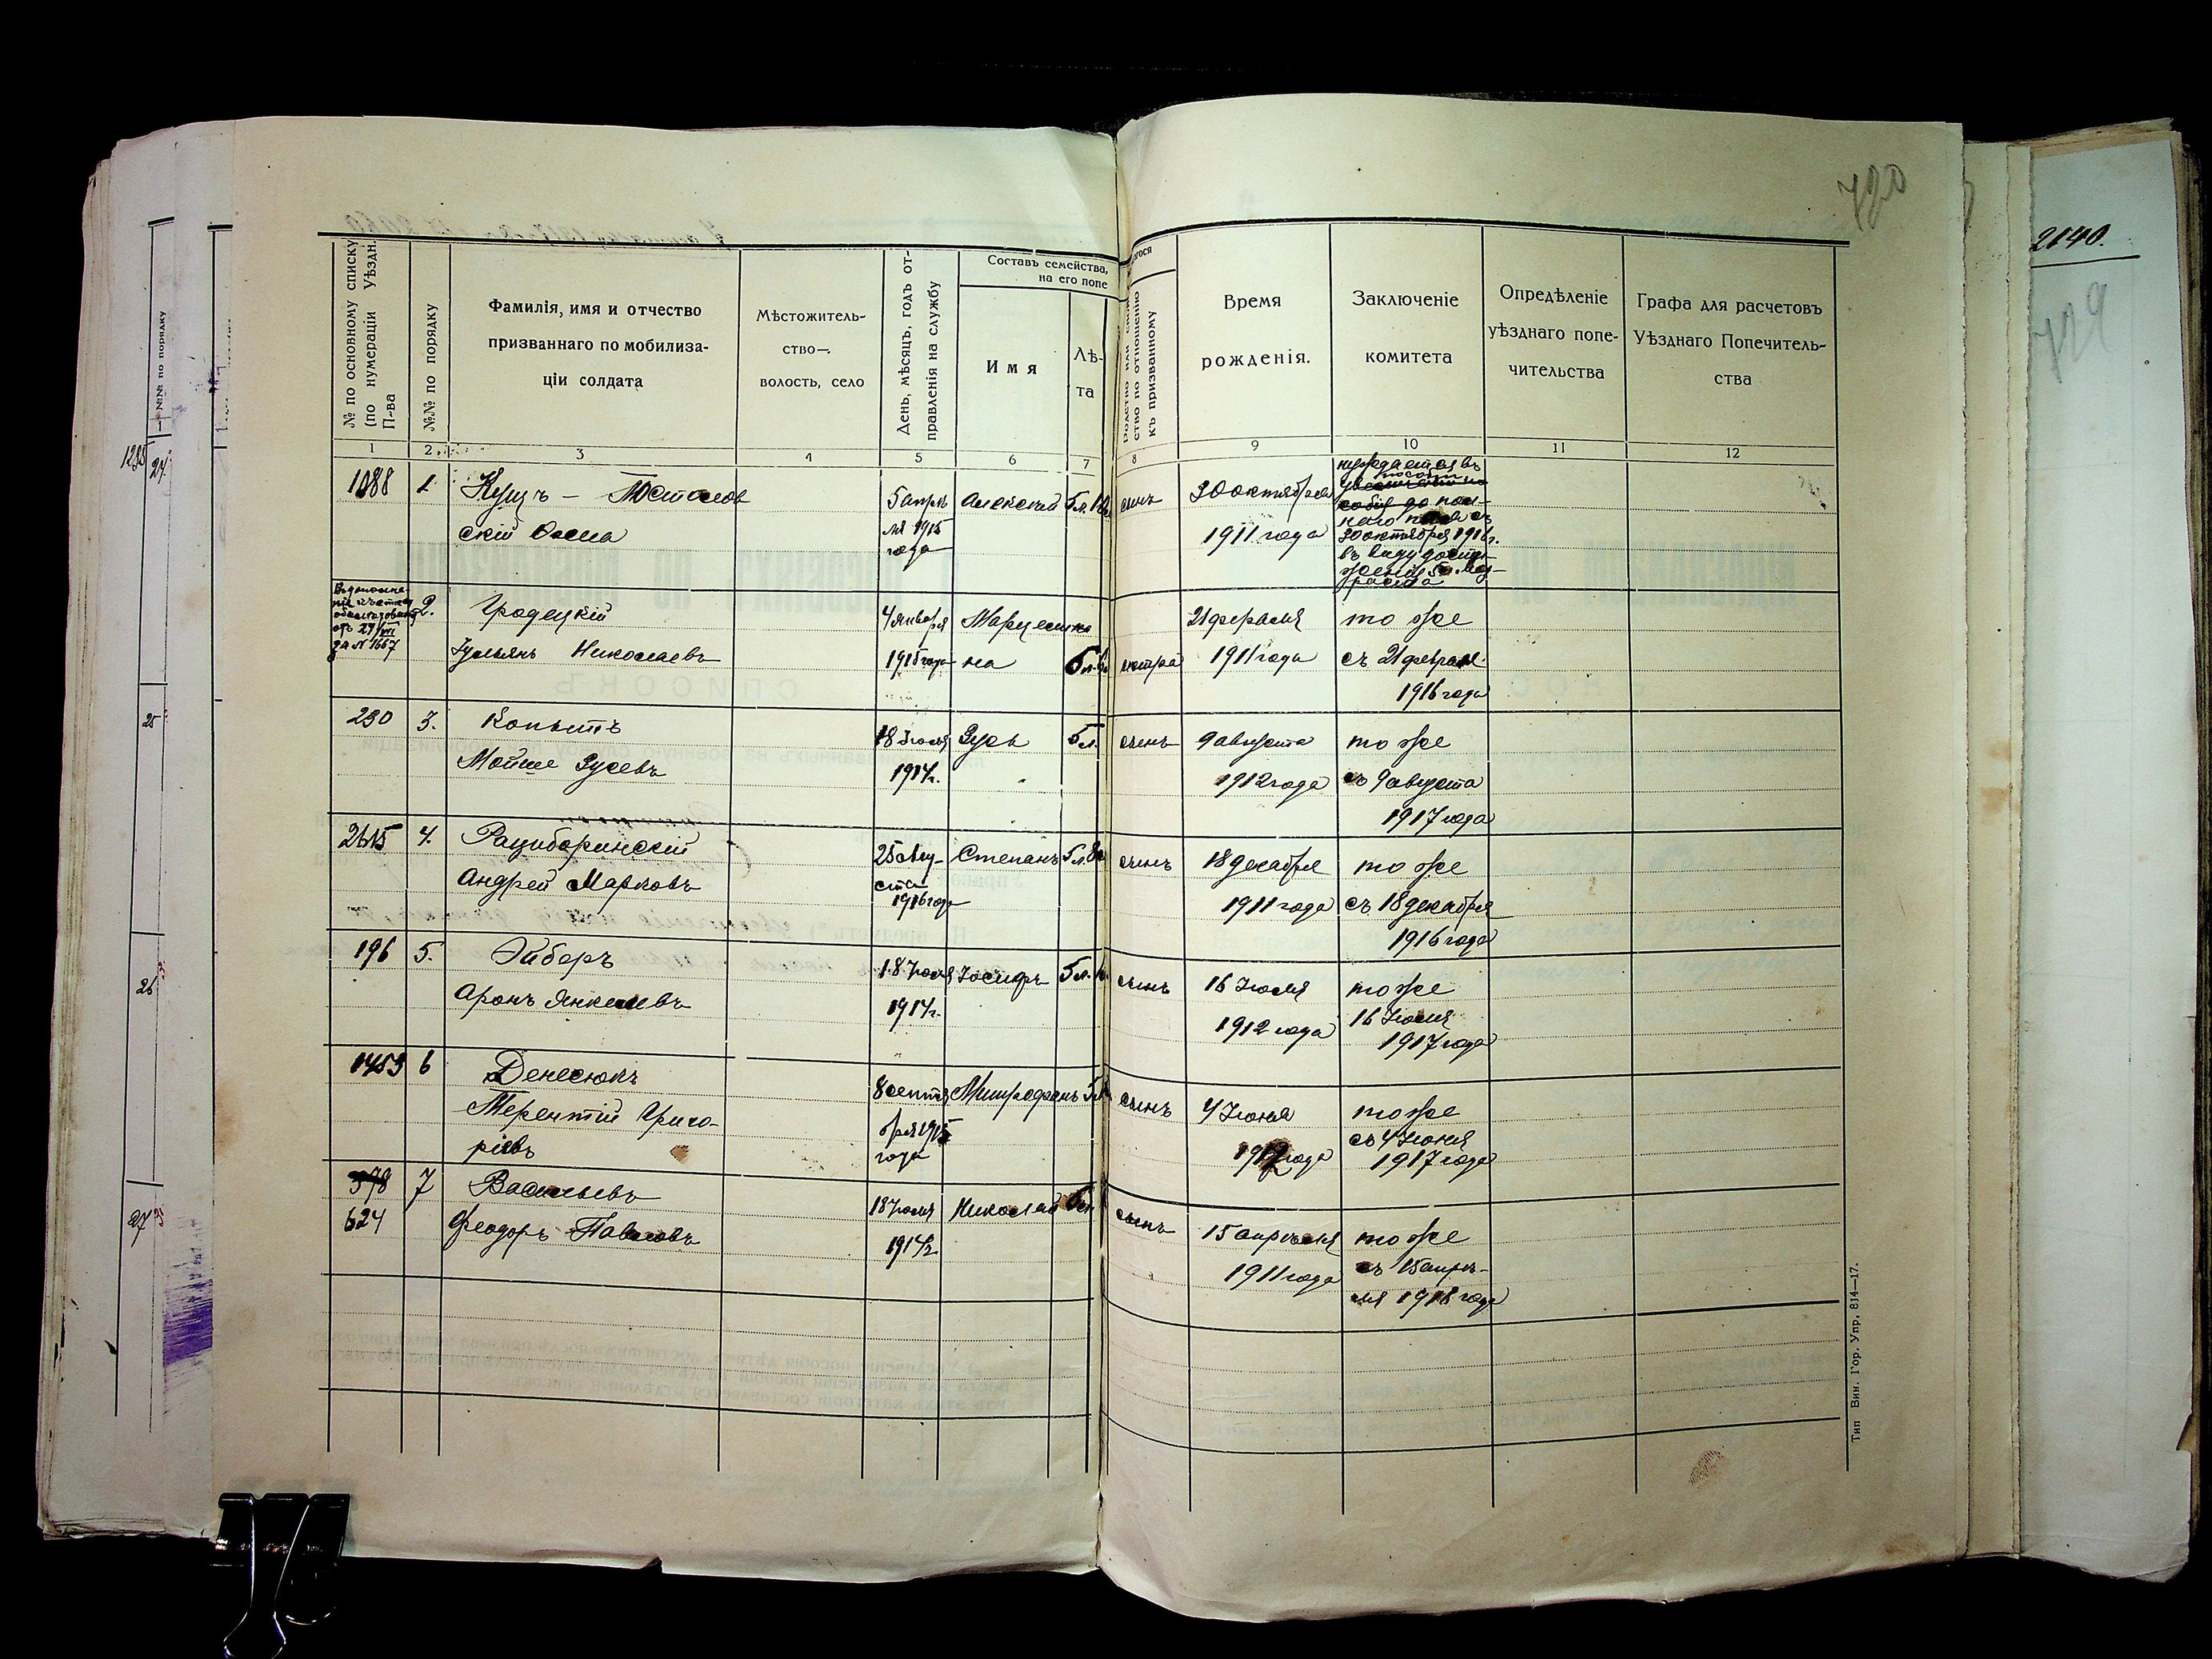 720
2140.
729
№№ по порядку
1285
24.
25
26
27
№ по основному списку
(по нумераціи Уѣздн.
П-ва
№№ по порядку
Фамилія, имя и отчество
призваннаго по мобилиза-
ціи солдата
Мѣстожитель-
ство—.
волость, село
День, мѣсяцъ, годъ от-
правленія на службу
Составъ семейства,
на его попе
Имя
Лѣ-
та
гося
ство по отношенію
къ призванному
Время
рожденія.
Заключеніе
комитета
Опредѣленіе
уѣзднаго попе-
чительства
Графа для расчетовъ
Уѣзднаго Попечитель-
ства
1 2 3 4 5 6 7 8 9 10 11 12
1088 1 Куцъ —
скій
5 апрѣ
ля 1915
года
Алексѣй 5 л.
сынъ
30 октября
1911 года
нуждается въ
собіе до пол-
наго съ
30 октября 1916 г.
въ виду дости-
женія 5 л. воз-
раста
за № 1667
2. Гродецкій
Іульянъ Николаевъ
4 января
1915 года
на
5 л.
сестра
21 февраля
1911 года
то же
съ 21 февраля
1916 года
230 3. Копытъ
Мойше Зусевъ
18 Іюля
1914 г.
Зусь 5 л. сынъ
9 августа
1912 года
то же
съ 9 августа
1917 года
2615 4. Рациборинскій
Андрей Марковъ
25 авгу-
ста
1916 года
Степанъ 5 л. 8 сынъ
18 декабря
1911 года
то же
съ 18 декабря
1916 года
196 5. Эйберъ
Аронъ Янкелевъ
18 Іюля
1914 г.
Іосифъ 5 л. сынъ
16 Іюля
1912 года
то же
16 Іюля
1917 года
1453 6 Денесюкъ
Терентій Григо-
ріевъ
8 сентя
бря 1915
года
Митрофанъ 5 л. сынъ
4 Іюня
1912 года
то же
съ 4 Іюня
1917 года
378 7 Васильевъ
624 Феодоръ Павловъ
18 Іюля
1914 г.
Николай 6 л. сынъ
15 апрѣля
1911 года
то же
съ 15 апрѣ-
ля 1916 года
Тип Вин. Гор. Упр. 814—17.